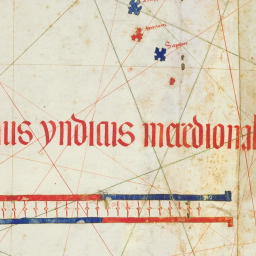 nus yndicus meredional